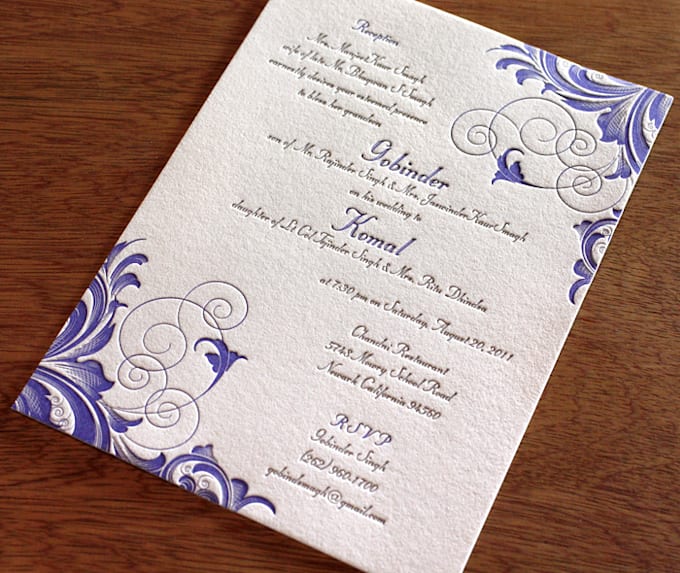 Reception
Mrs. Manjeet Kaur Saagh
wife of late Mr. Bhagwan S Saagh
earnestly desires your esteemed presence
to bless her grandson
Gobinder
son of Mr. Rajinder Singh & Mrs. Jaswinder Kaur Saagh
on his wedding to
Komal
daughter of Lt Col Tejinder Singh & Mrs. Ritu Dhindsa
at 7:30 pm on Saturday, August 20, 2011
Chandni Restaurant
5748 Mowry School Road
Newark California 94560
RSVP
Gobinder Singh
(262) 960-1700
@gmail.com